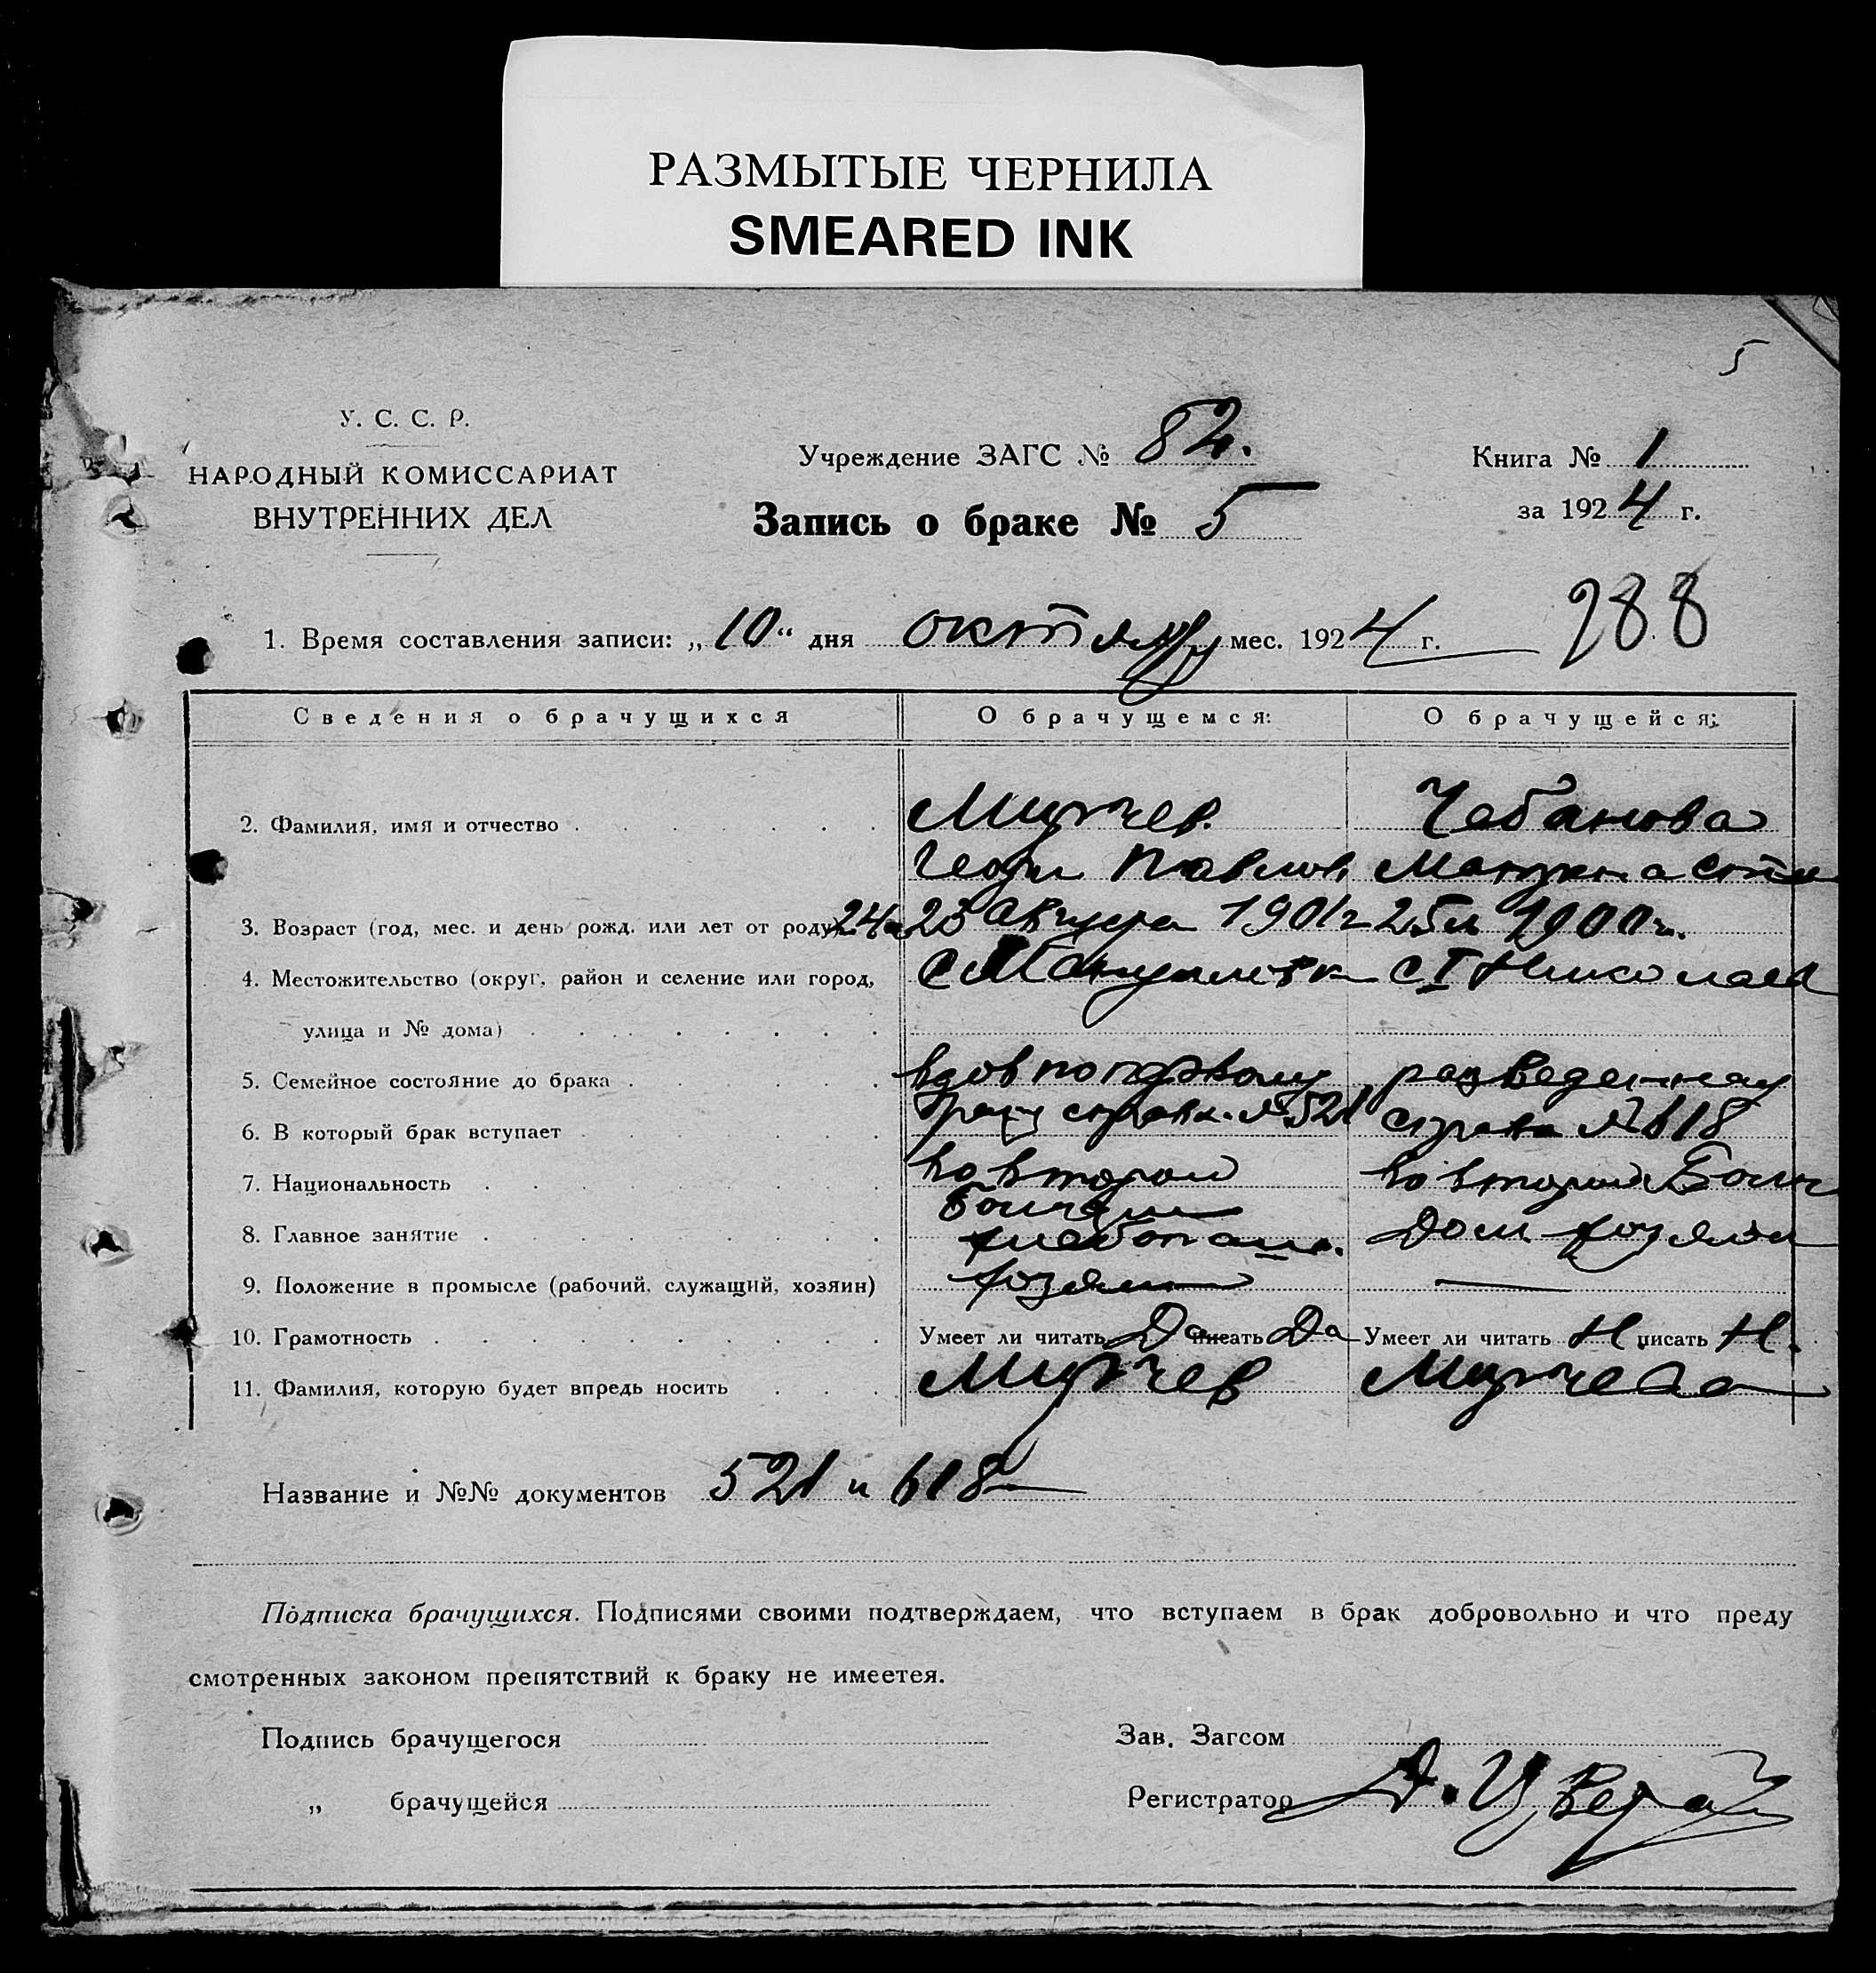 РАЗМЫТЫЕ ЧЕРНИЛА
SMEARED INK
5
У. С. С. Р.
НАРОДНЫЙ КОМИССАРИАТ
ВНУТРЕННИХ ДЕЛ
Учреждение ЗАГС № 82.
Запись о браке № 5
Книга № 1
за 1924 г.
288
1. Время составления записи: „10“ дня октября мес. 1924 г.
Сведения о брачущихся О брачущемся: О брачущейся:
2. Фамилия, имя и отчество Чебанова
Павлов
3. Возраст (год, мес. и день рожд. или лет от роду) 24 23 Августа 1901 г 25 л 1900 г.
4. Местожительство (округ, район и селение или город, с с I Николаев
улица и № дома)
5. Семейное состояние до брака вдов по первому разведенная
браку справк. № 521 справка № 618
6. В который брак вступает
во втором во второй Болг
7. Национальность
Болгарин
8. Главное занятие хлебопаш. Дом. хозяйка
9. Положение в промысле (рабочий, служащий, хозяин) хозяин —
10. Грамотность Умеет ли читать Да писать Да Умеет ли читать Н писать Н.
11. Фамилия, которую будет впредь носить
Название и №№ документов 521 и 618
Подписка брачущихся. Подписями своими подтверждаем, что вступаем в брак добровольно и что преду
смотренных законом препятствий к браку не имеется.
Подпись брачущегося
Зав. Загсом
„ брачущейся
Регистратор